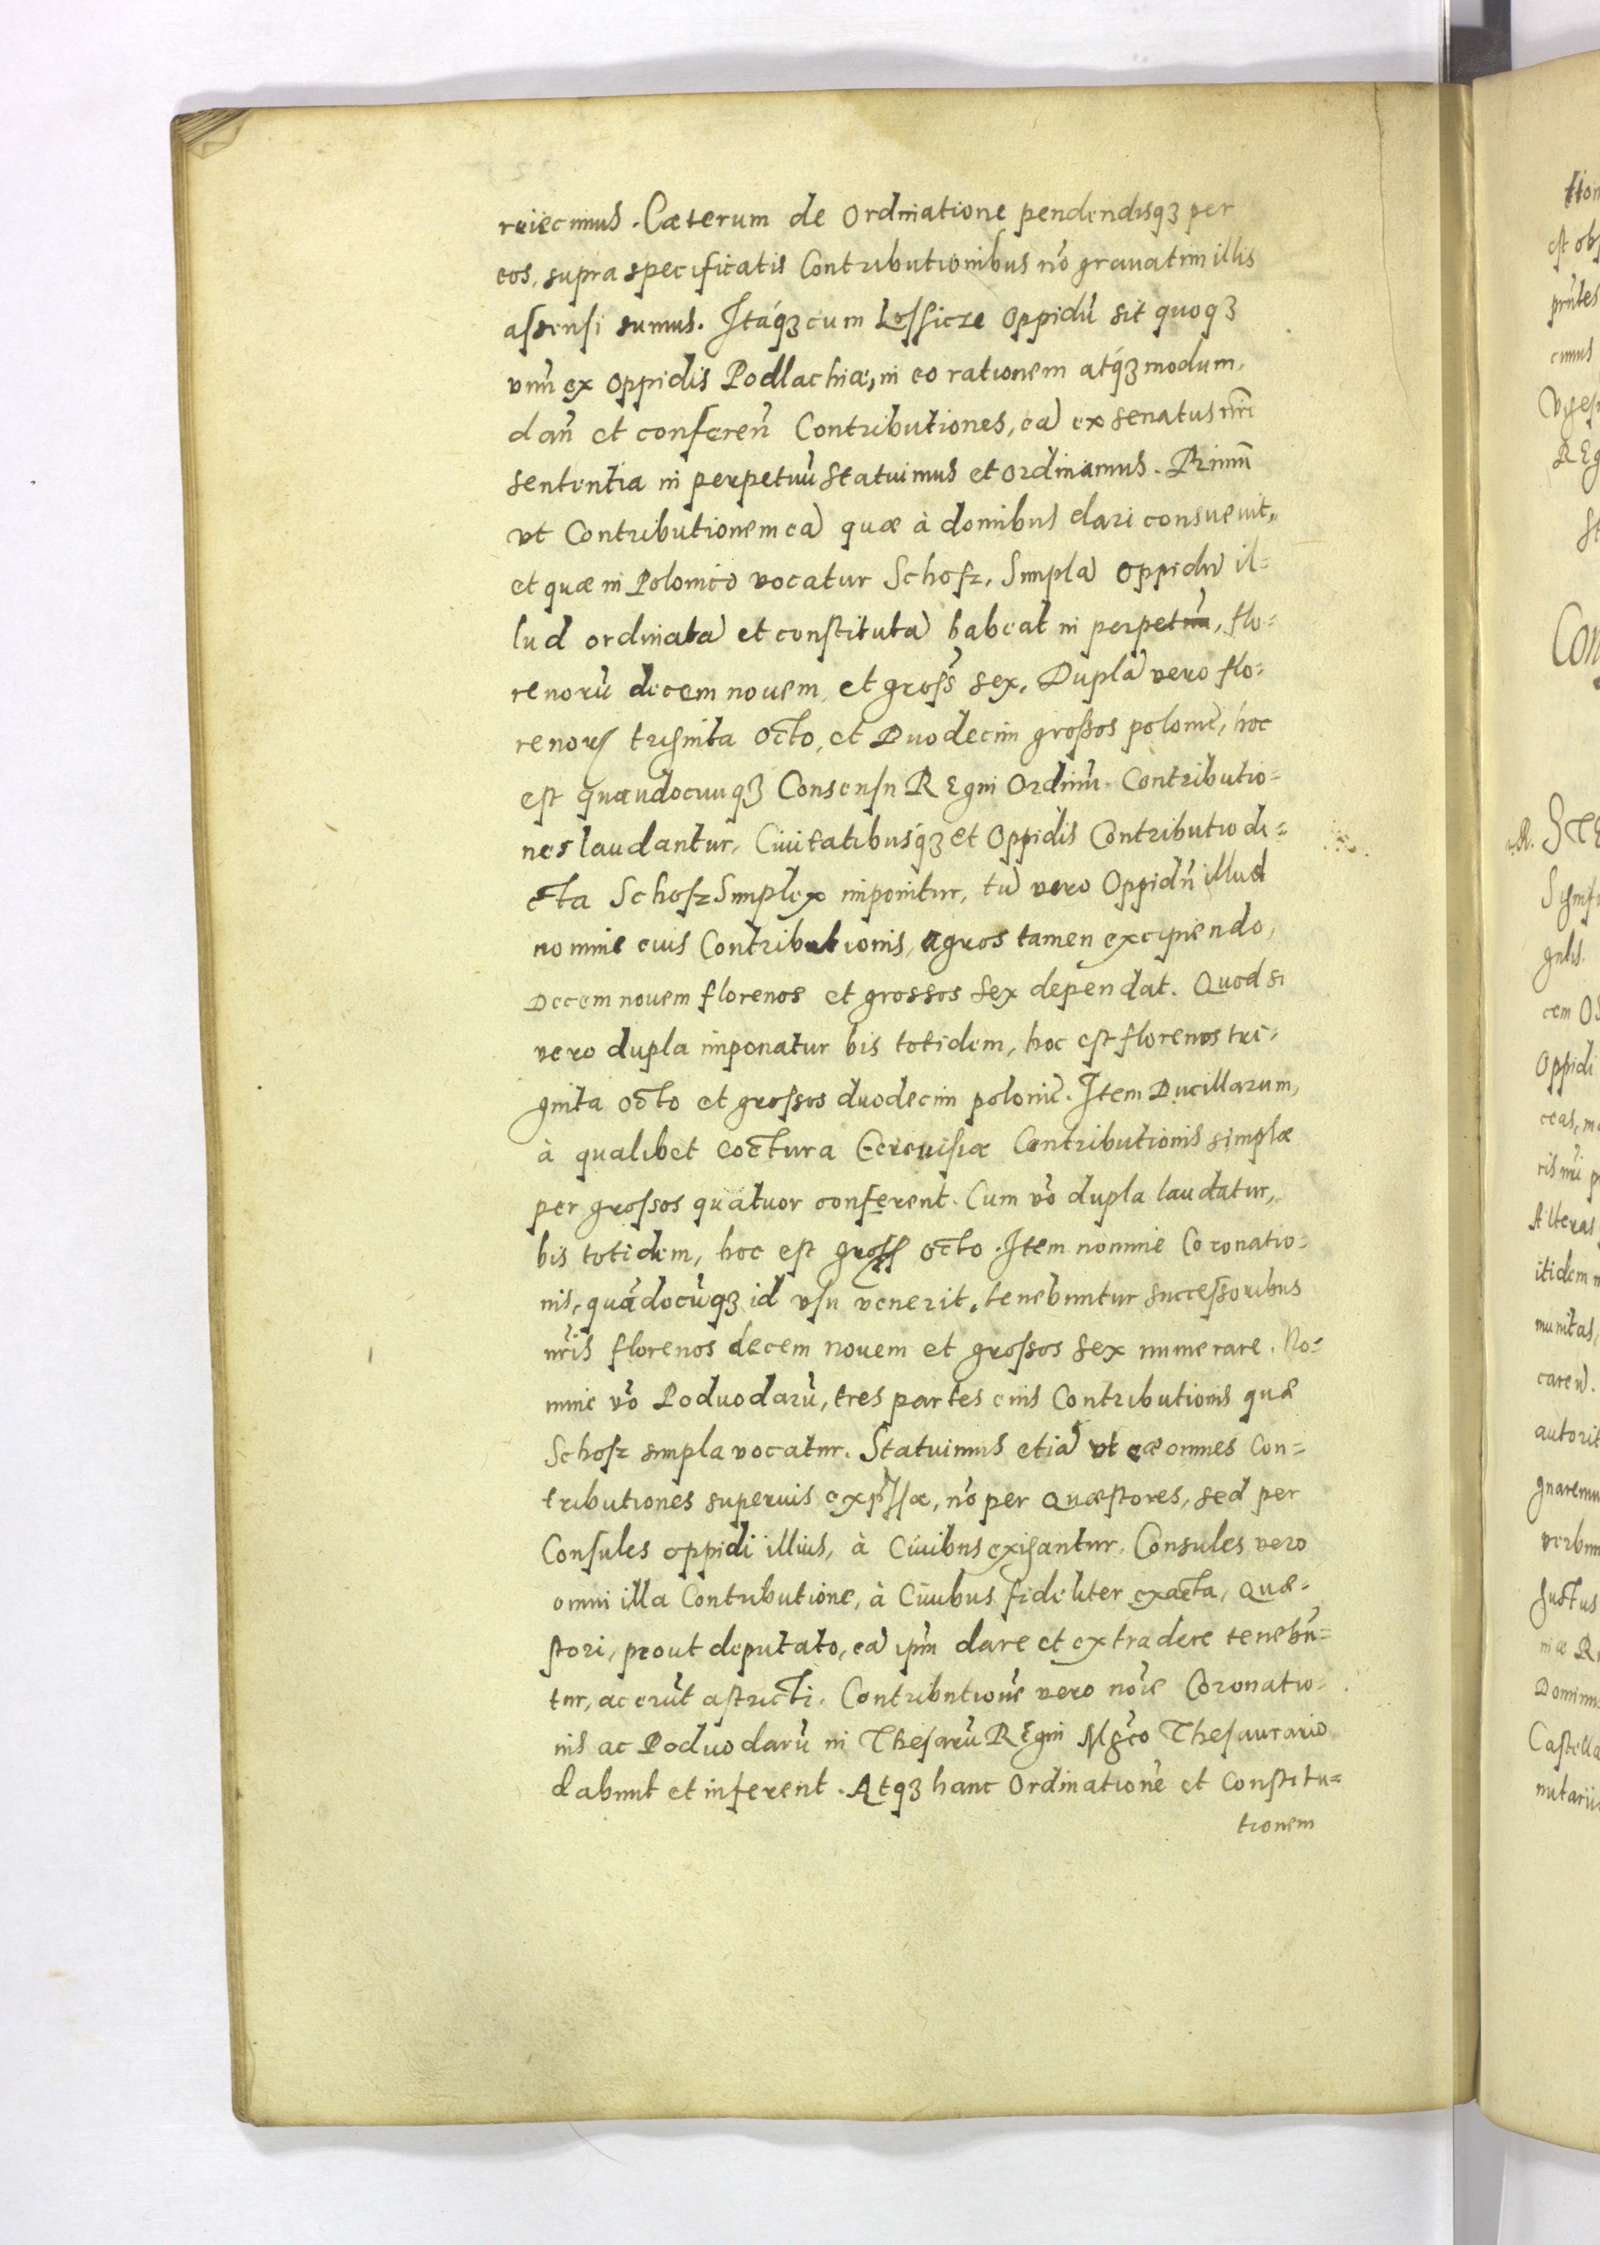 reiecimus. Cæterum de Ordinatione pendendisqꝫ per
eos, supra specificatis Contributionibus nõ grauatim illis
assensi sumus. Itáqꝫ cum Lossicze Oppidũ sit quoqꝫ
vnũ ex Oppidis Podlachiæ, in eo rationem atqꝫ modum,
dañ et confereñ Contributiones, eã ex senatus nr̃i
sententia in perpetuũ statuimus et ordinamus. Primũ
vt Contributionem eã quæ à domibus dari consueuit,
et quæ in Polonico vocatur Schosz, Simplã Oppidũ il=
lud ordinatã et constitutã habeat in perpetuũ, flo=
renorũ decem nouem, et gross̃ sex, Duplã vero flo=
renorꝝ triginta octo, et Duodecim grossos polonic̃, hoc
est quandocunqꝫ Consensu REgni Ordinũ Contributio=
nes laudantur, Ciuitatibusqꝫ et Oppidis Contributio di=
cta Schosz Simplex imponitur, tũ vero Oppidũ illud
nomine euis Contributionis, agros tamen excipiendo,
Decem nouem florenos et grossos sex dependat. Quod si
vero dupla imponatur bis totidem, hoc est florenos tri=
ginta octo et grossos duodecim polonic̃. Item Ducillarum,
à qualibet coctura Cereuisiæ Contributionis simplæ
per grossos quatuor conferent. Cum võ dupla laudatur,
bis totidem, hoc est gross octo. Item nomine Coronatio=
nis, quãdocũqꝫ id vsu venerit, tenebuntur successoribus
nr̃is florenos decem nouem et grossos sex numerare. No=
mine võ Poduodarũ, tres partes euis Contributionis quæ
Schosz simpla vocatur. Statuimus etiã vt eæ omnes Con=
tributiones superuis exp̃ssæ, nõ per Quæstores, sed per
Consules oppidi illius, à Ciuibus exigantur. Consules vero
omni illa Contributione, à Ciuibus fideliter exacta, Quæ=
stori, prout deputato, eã ipm̃ dare et extradere tenebũ=
tur, ac erũt astricti. Contributionẽ vero noĩe Coronatio=
nis ac Poduodarũ in Thesarũ REgni Mg̃co Thesaurario
dabunt et inferent. Atqꝫ hanc Ordinationẽ et Constitu=
tionem